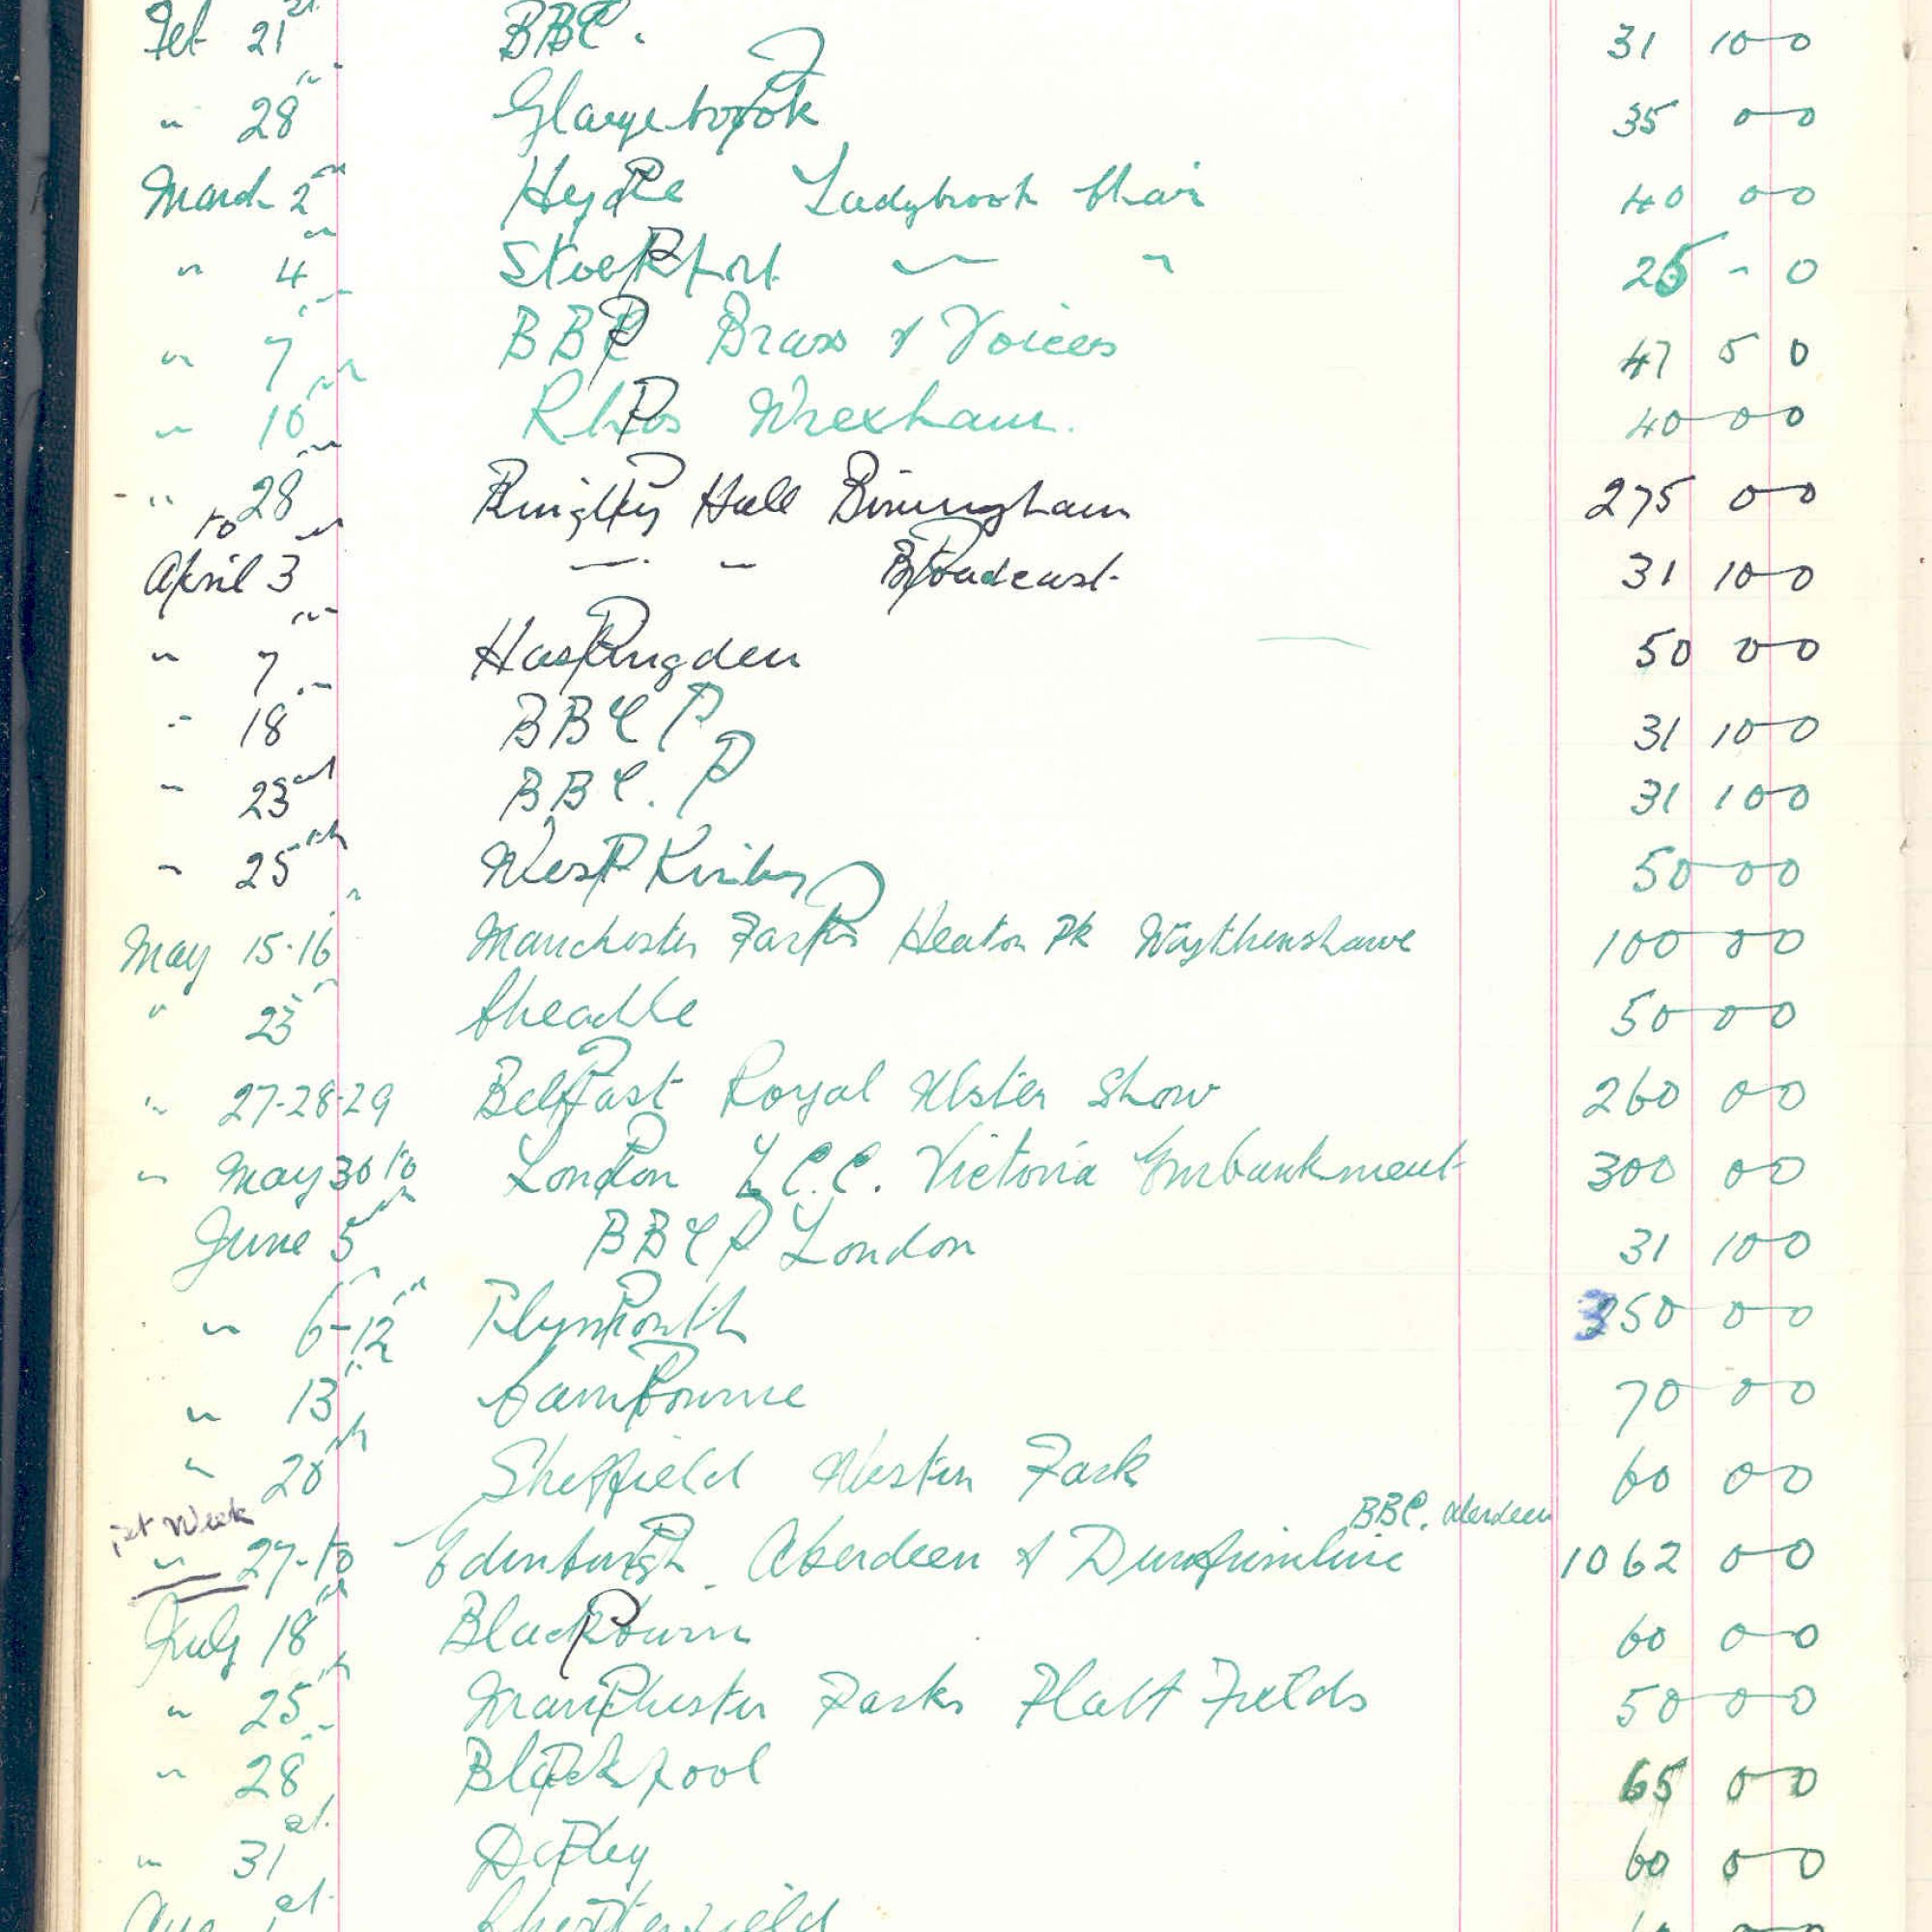 Feb 21st BBC. 31 10 0
" 28th Glazebrook 35 0 0
March 2nd Hyde Ladybrook Choir 40 0 0
" 4th Stockport " " 25 - 0
" 7th BBC Brass & Voices 47 5 0
" 10th Rhos Wrexham. 40 0 0
" 28th Bingley Hall Birmingham 275 0 0
to
April 3 " " Broadcast 31 10 0
" 7th Haslingden 50 0 0
" 18th BBC P 31 10 0
" 23rd BBC. P 31 10 0
" 25th West Kirby 50 0 0
May 15-16 Manchester Parks Heaton Pk Wythenshawe 100 0 0
" 23 Cheadle 50 0 0
" 27-28-29 Belfast Royal Ulster Show 260 0 0
" May 30 to London L.C.C. Victoria Embankment 300 0 0
June 5th BBC P London 31 10 0
" 6-12th Plymouth 350 0 0
" 13th Cambourne 70 0 0
" 20th Sheffield Weston Park 60 0 0
1st Week BBC. Aberdeen
" 27-to Edinburgh. Aberdeen & Dunfirmline 1062 0 0
July 18th Blackburn 60 0 0
" 25th Manchester Parks Platt Fields 50 0 0
" 28 Blackpool 65 0 0
" 31st 60 0 0
Aug 1st Chesterfield